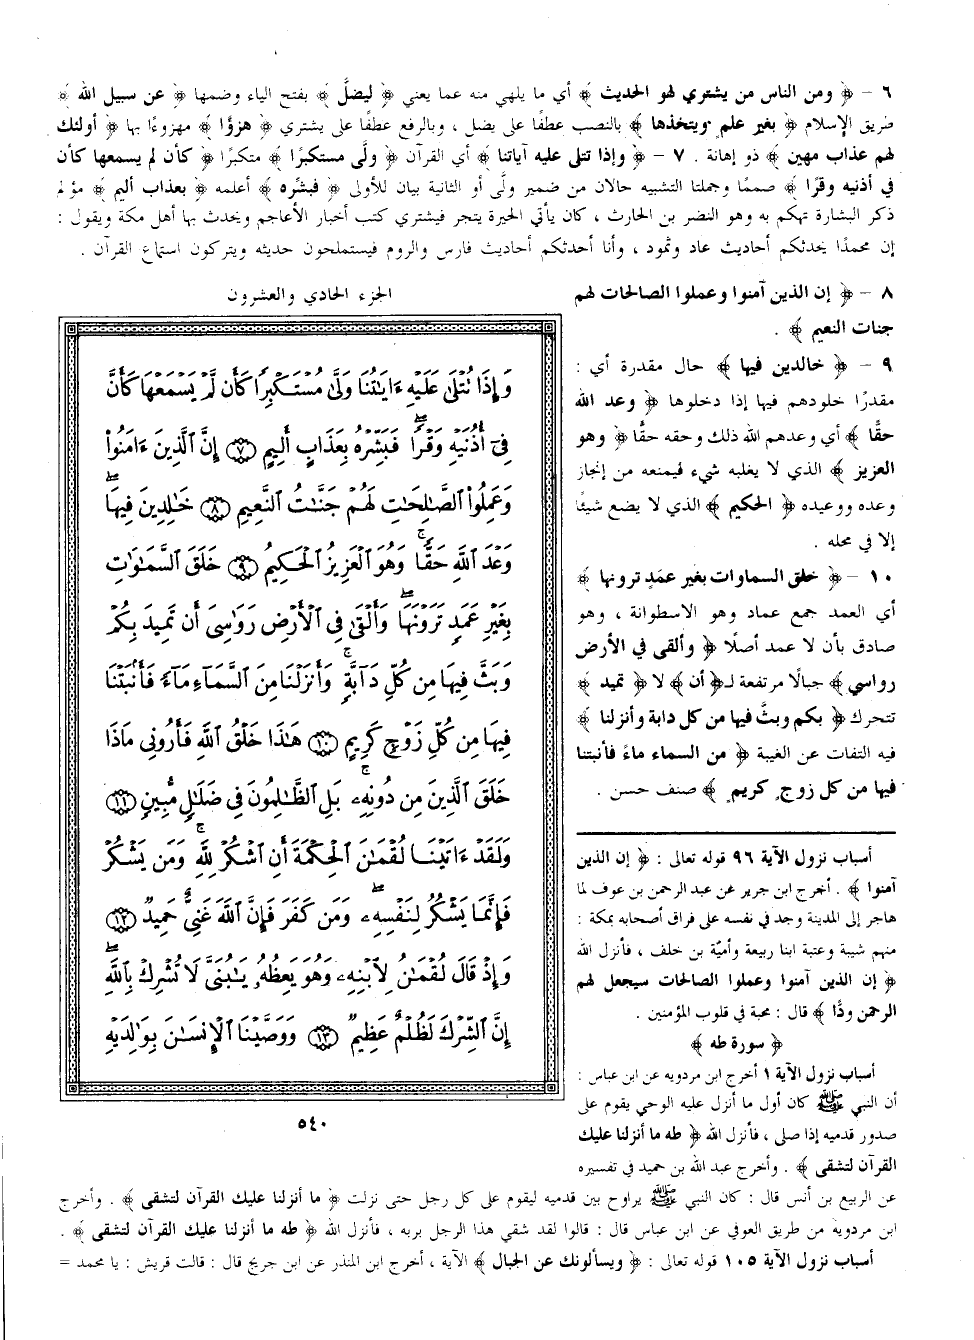 ٦ - ﴿ ومن الناس من يشتري لهو الحديث ﴾ أي ما يلهي منه عما يعني ﴿ ليضلَّ ﴾ بفتح الياء وضمها ﴿ عن سبيل الله ﴾
طريق الإسلام ﴿ بغير علم ويتخذها ﴾ بالنصب عطفًا على يضل ، وبالرفع عطفًا على يشتري ﴿ هزؤا ﴾ مهزوءًا بها ﴿ أولئك
لهم عذاب مهين ﴾ ذو إهانة . ٧ - ﴿ وإذا تتلى عليه آياتنا ﴾ أي القرآن ﴿ ولَّى مستكبرًا ﴾ متكبرًا ﴿ كأن لم يسمعها كأن
في أذنيه وقرًا ﴾ صممًا وجملتا التشبيه حالان من ضمير ولَّى أو الثانية بيان للأولى ﴿ فبشّره ﴾ أعلمه ﴿ بعذاب أليم ﴾ مؤلم
ذكر البشارة تهكم به وهو النضر بن الحارث ، كان يأتي الحيرة يتجر فيشتري كتب أخبار الأعاجم ويحدث بها أهل مكة ويقول :
إن محمدًا يحدثكم أحاديث عاد وثمود ، وأنا أحدثكم أحاديث فارس والروم فيستملحون حديثه ويتركون استماع القرآن .
٨ - ﴿ إن الذين آمنوا وعملوا الصالحات لهم
جنات النعيم ﴾ .
٩ - ﴿ خالدين فيها ﴾ حال مقدرة أي :
مقدرًا خلودهم فيها إذا دخلوها ﴿ وعد الله
حقًّا ﴾ أي وعدهم الله ذلك وحقه حقًّا ﴿ وهو
العزيز ﴾ الذي لا يغلبه شيء فيمنعه من إنجاز
وعده ووعيده ﴿ الحكيم ﴾ الذي لا يضع شيئًا
إلا في محله .
١٠ - ﴿ خلق السماوات بغير عمَدٍ ترونها ﴾
أي العمد جمع عماد وهو الاسطوانة ، وهو
صادق بأن لا عمد أصلًا ﴿ وألقى في الأرض
رواسي ﴾ جبالًا مرتفعة لـ﴿ أن ﴾ لا ﴿ تميد ﴾
تتحرك ﴿ بكم وبثَّ فيها من كل دابة وأنزلنا ﴾
فيه التفات عن الغيبة ﴿ من السماء ماءً فأنبتنا
فيها من كل زوج كريم ﴾ صنف حسن .
الجزء الحادي والعشرون
وَإِذَا تُتْلَىٰ عَلَيْهِ ءَايَٰتُنَا وَلَّىٰ مُسْتَكْبِرًا كَأَن لَّمْ يَسْمَعْهَا كَأَنَّ
فِىٓ أُذُنَيْهِ وَقْرًاۖ فَبَشِّرْهُ بِعَذَابٍ أَلِيمٍ ٧ إِنَّ ٱلَّذِينَ ءَامَنُوا۟
وَعَمِلُوا۟ ٱلصَّٰلِحَٰتِ لَهُمْ جَنَّٰتُ ٱلنَّعِيمِ ٨ خَٰلِدِينَ فِيهَاۖ
وَعْدَ ٱللَّهِ حَقًّاۚ وَهُوَ ٱلْعَزِيزُ ٱلْحَكِيمُ ٩ خَلَقَ ٱلسَّمَٰوَٰتِ
بِغَيْرِ عَمَدٍ تَرَوْنَهَاۖ وَأَلْقَىٰ فِى ٱلْأَرْضِ رَوَٰسِىَ أَن تَمِيدَ بِكُمْ
وَبَثَّ فِيهَا مِن كُلِّ دَآبَّةٍۚ وَأَنزَلْنَا مِنَ ٱلسَّمَآءِ مَآءً فَأَنۢبَتْنَا
فِيهَا مِن كُلِّ زَوْجٍ كَرِيمٍ ١٠ هَٰذَا خَلْقُ ٱللَّهِ فَأَرُونِى مَاذَا
خَلَقَ ٱلَّذِينَ مِن دُونِهِۦۚ بَلِ ٱلظَّٰلِمُونَ فِى ضَلَٰلٍ مُّبِينٍ ١١
وَلَقَدْ ءَاتَيْنَا لُقْمَٰنَ ٱلْحِكْمَةَ أَنِ ٱشْكُرْ لِلَّهِۚ وَمَن يَشْكُرْ
فَإِنَّمَا يَشْكُرُ لِنَفْسِهِۦۖ وَمَن كَفَرَ فَإِنَّ ٱللَّهَ غَنِىٌّ حَمِيدٌ ١٢
وَإِذْ قَالَ لُقْمَٰنُ لِٱبْنِهِۦ وَهُوَ يَعِظُهُۥ يَٰبُنَىَّ لَا تُشْرِكْ بِٱللَّهِۖ
إِنَّ ٱلشِّرْكَ لَظُلْمٌ عَظِيمٌ ١٣ وَوَصَّيْنَا ٱلْإِنسَٰنَ بِوَٰلِدَيْهِ
٥٤٠
أسباب نزول الآية ٩٦ قوله تعالى : ﴿ إن الذين
آمنوا ﴾ . أخرج ابن جرير عن عبد الرحمن بن عوف لما
هاجر إلى المدينة وجد في نفسه على فراق أصحابه بمكة :
منهم شيبة وعتبة ابنا ربيعة وأميّة بن خلف ، فأنزل الله
﴿ إن الذين آمنوا وعملوا الصالحات سيجعل لهم
الرحمن ودًّا ﴾ قال : محبة في قلوب المؤمنين .
﴿ سورة طه ﴾
أسباب نزول الآية ١ أخرج ابن مردويه عن ابن عباس :
أن النبي ﷺ كان أول ما أنزل عليه الوحي يقوم على
صدور قدميه إذا صلى ، فأنزل الله ﴿ طه ما أنزلنا عليك
القرآن لتشقى ﴾ . وأخرج عبد الله بن حميد في تفسيره
عن الربيع بن أنس قال : كان النبي ﷺ يراوح بين قدميه ليقوم على كل رجل حتى نزلت ﴿ ما أنزلنا عليك القرآن لتشقى ﴾ . وأخرج
ابن مردويه من طريق العوفي عن ابن عباس قال : قالوا لقد شقي هذا الرجل بربه ، فأنزل الله ﴿ طه ما أنزلنا عليك القرآن لتشقى ﴾ .
أسباب نزول الآية ١٠٥ قوله تعالى : ﴿ ويسألونك عن الجبال ﴾ الآية ، أخرج ابن المنذر عن ابن جريج قال : قالت قريش : يا محمد =